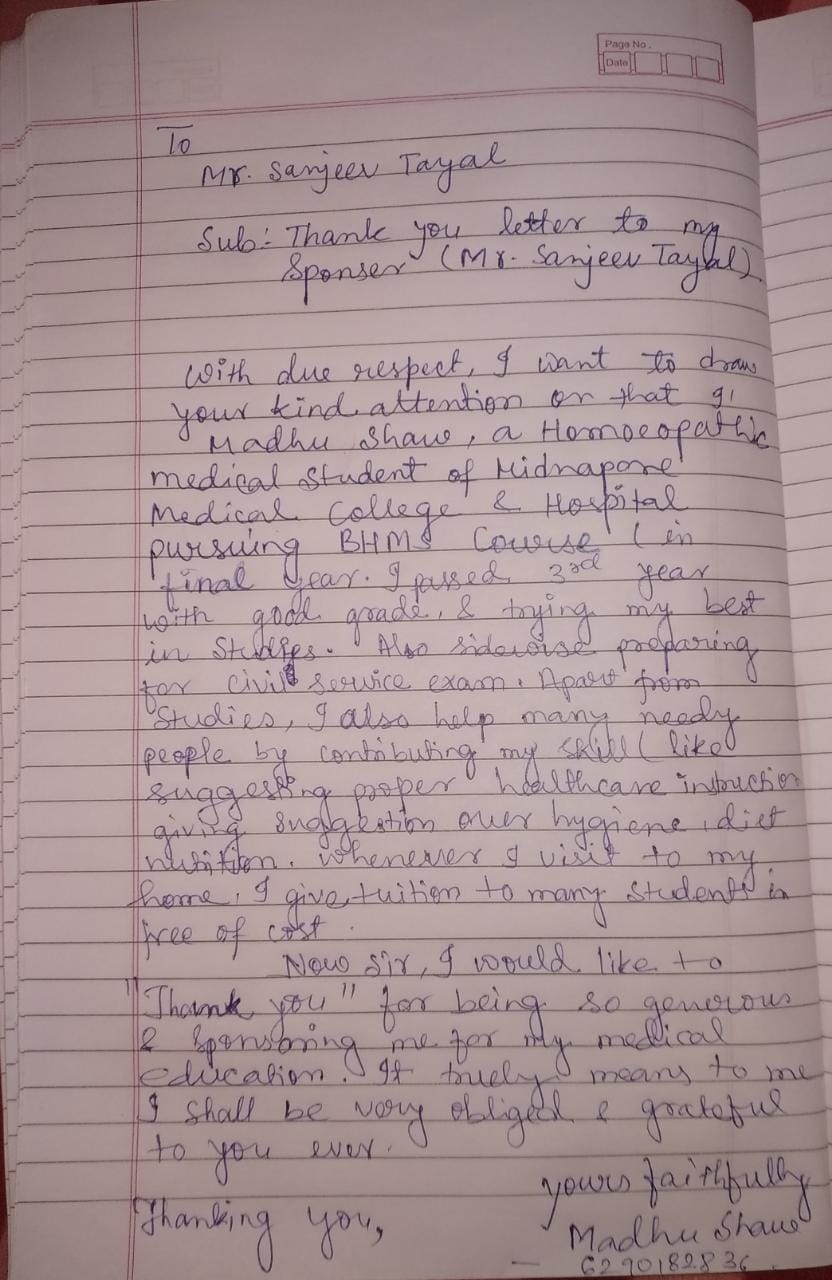 Page No.
Date
To
Mr. Sanjeev Tayal
Sub:- Thank you letter to my
Sponser (Mr. Sanjeev Tayal)
With due respect, I want to draw
your kind attention on that I,
Madhu Shaw, a Homoeopathic
medical student of Midnapore
Medical College & Hospital
pursuing BHMS Course (in
final year. I passed 3rd year
with good grade, & trying my best
in Studies. Also sidewise preparing
for civil service exam. Apart from
Studies, I also help many needy
people by contributing my skill (like
suggesting proper healthcare instruction
giving suggestion over hygiene, diet
nutrition. Whenever I visit to my
home, I give tuition to many students in
free of cost.
Now Sir, I would like to
"Thank you" for being so generous
& sponsoring me for my medical
education. It truely means to me
I shall be very obliged & grateful
to you ever.
yours faithfully
Thanking you,
Madhu Shaw
6290182836